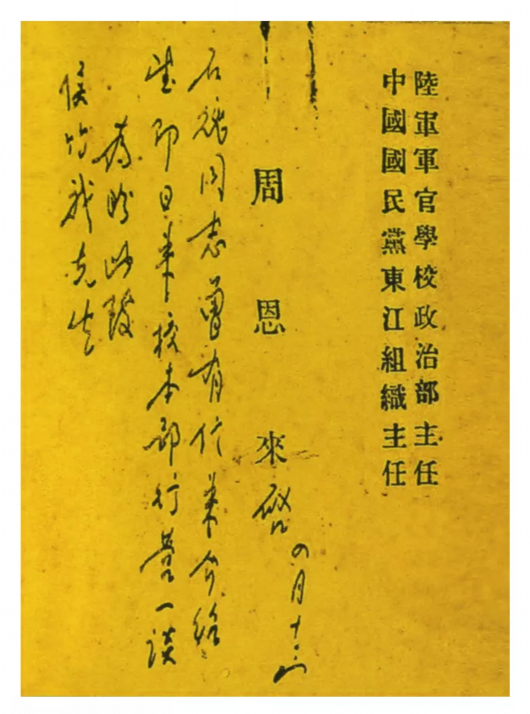 陸軍軍官學校政治部主任
中國國民黨東江組織主任
周恩來啓 四月十三
石魂同志曾有信來介紹
望即日來校本部行營一談
為盼此致
侯竹我先生